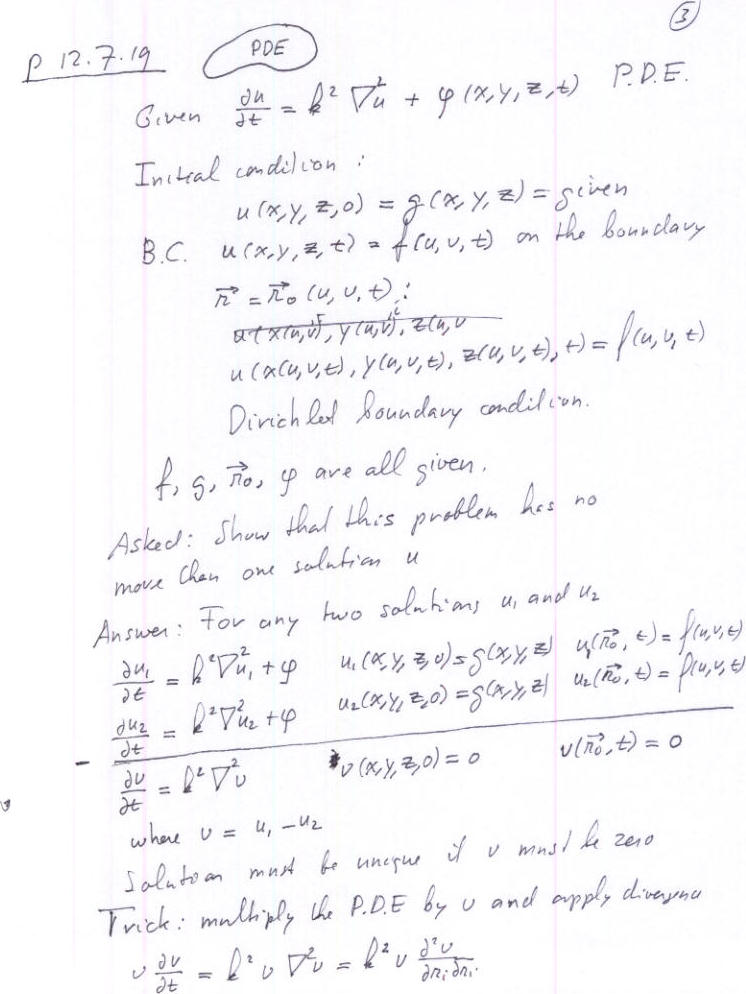 ③
P 12.7.19 PDE
Given ∂u/∂t = k² ∇²u + φ(x,y,z,t) P.D.E.
Initial condition :
u(x,y,z,0) = g(x,y,z) = given
B.C. u(x,y,z,t) = f(u,v,t) on the boundary
r⃗ = r⃗₀(u,v,t) :
u(x(u,v), y(u,v), z(u,v
u(x(u,v,t), y(u,v,t), z(u,v,t), t) = f(u,v,t)
Dirichlet boundary condition.
f, g, r⃗₀, φ are all given.
Asked: Show that this problem has no
more than one solution u
Answer: For any two solutions u₁ and u₂
∂u₁/∂t = k²∇²u₁ + φ u₁(x,y,z,0) = g(x,y,z) u₁(r⃗₀, t) = f(u,v,t)
∂u₂/∂t = k²∇²u₂ + φ u₂(x,y,z,0) = g(x,y,z) u₂(r⃗₀, t) = f(u,v,t)
-
∂v/∂t = k²∇²v v(x,y,z,0) = 0 v(r⃗₀, t) = 0
where v = u₁ - u₂
Solution must be unique if v must be zero
Trick: multiply the P.D.E by v and apply divergence
v ∂v/∂t = k² v ∇²v = k² v ∂²v/∂rᵢ∂rᵢ